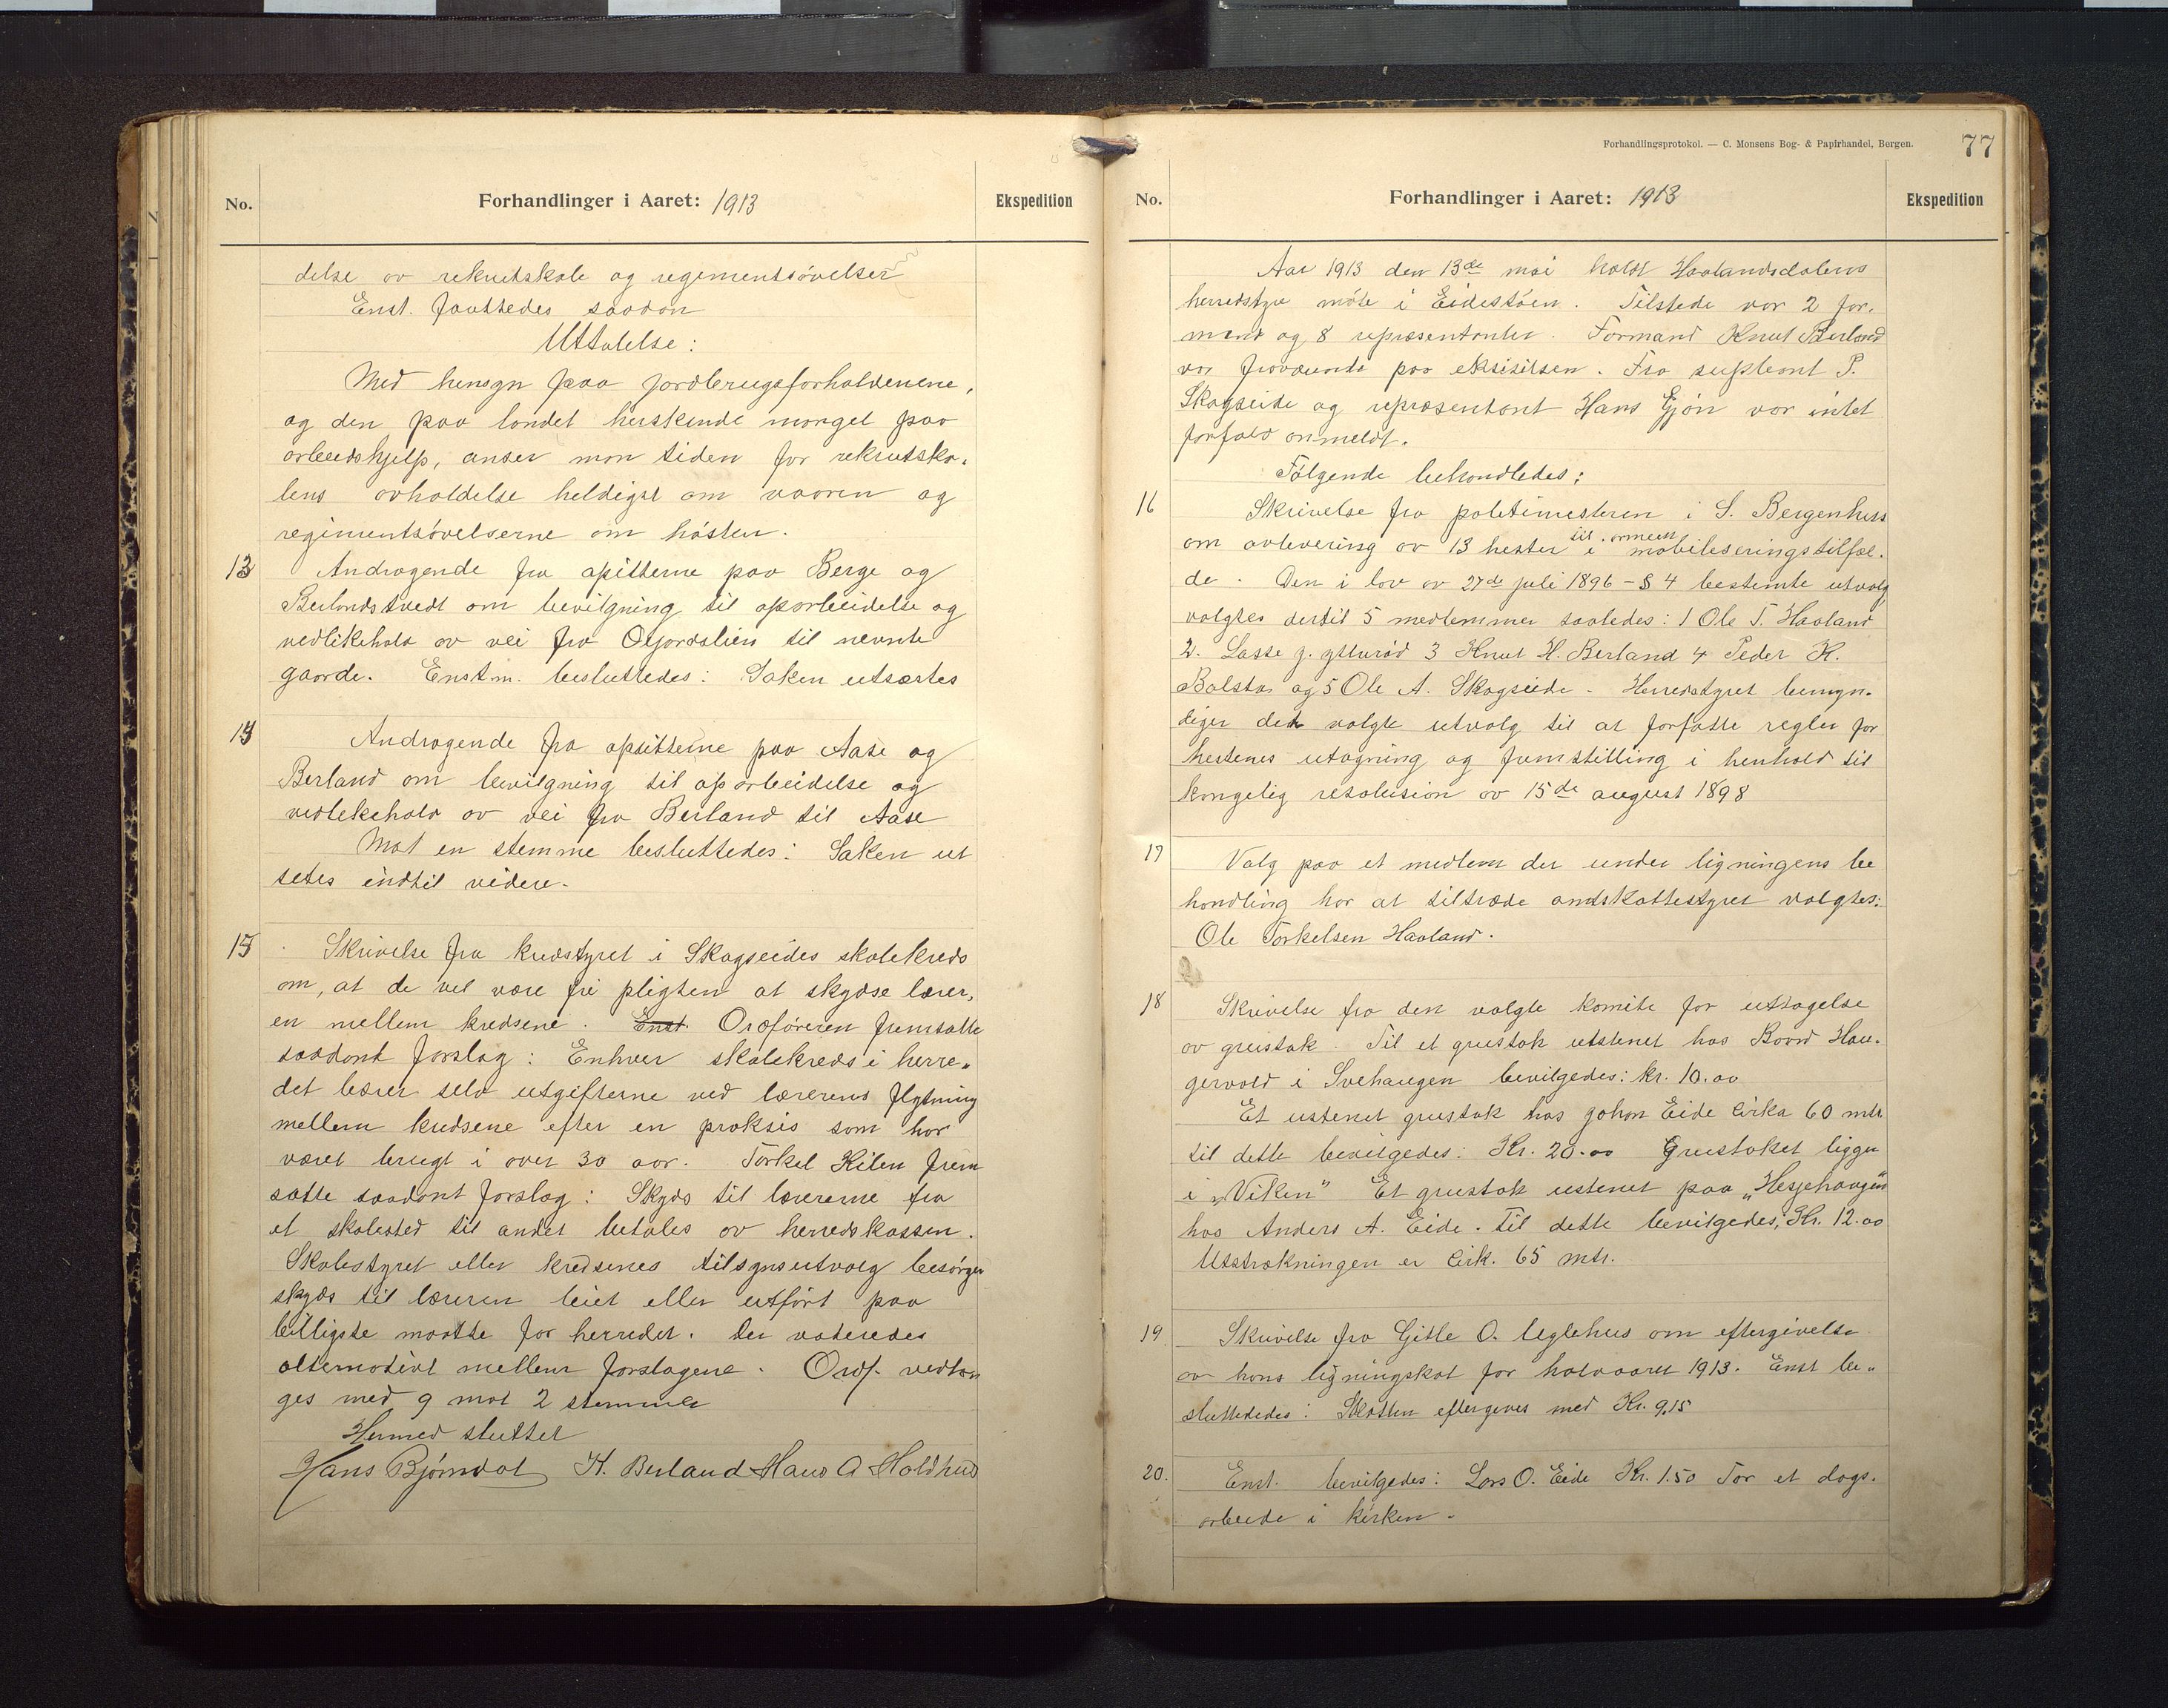 No.
Forhandlinger i Aaret: 1913
Ekspedition
delse av rekrutskole og regementsövelser
Enst. fattedes saadan
Uttalelse:
Med hensyn paa jordbrugsforholdenene,
og den paa landet herskende mangel paa
arbeidshjelp, anser man tiden for rekrutsko-
lens avholdelse heldigst om vaaren og
regimentsövelserne om hösten.
13 Andragende fra opsitterne paa Berge og
Berlandstvedt om bevilgning til oparbeidelse og
vedlikehold av vei fra Ofjordslien til nevnte
gaarde. Enstm. besluttedes: Saken utsættes
14 Andragende fra opsitterne paa Aase og
Berland om bevilgning til oparbeidelse og
vedlekehold av vei fra Berland til Aase
Mot en stemme besluttedes: Saken ut
setes indtil videre.
15 Skrivelse fra kredsstyret i Skogseides skolekreds
om, at de vil være fri pligten at skydse lærer,
en mellem kredsene. Enst. Ordföreren fremsatte
saadant forslag: Enhver skolekreds i herre-
det bærer selv utgifterne ved lærerens flytning
mellem kredsene efter en praksis som har
været brugt i over 30 aar. Torkel Kilen frem
satte saadant forslag: Skyds til lærerne fra
et skolested til andet betales av herredskassen.
Skolestyret eller kredsenes tilsynsutvalg besörger
skyds til læreren leiet eller utfört paa
billigste maatte for herredet. Der voteredes
alternativt mellem forslagene. Ordf. vedtan
ges med 9 mot 2 stemmer
Hermed sluttet
Hans Bjørndal K. Berland Hans A Holdhus
Forhandlingsprotokol. — C. Monsens Bog- & Papirhandel, Bergen.
77
No.
Forhandlinger i Aaret: 1913
Ekspedition
Aar 1913 den 13de mai holdt Haalandsdalens
herredstyre möte i Eidestöen. Tilstede var 2 for-
mænd og 8 repræsentanter. Formand Knut Berland
var fraværende paa eksisitsen. Fra supleant P.
Skogseide og repræsentant Hans Gjön var intet
forfald anmeldt.
Fölgende behandledes:
16 Skrivelse fra politimesteren i S. Bergenhus
om avlevering av 13 hester til armeen i mobiliseringstilfæl.
de. Den i lov av 27de juli 1896 - § 4 bestemte utvalg
valgtes dertil 5 medlemmer saaledes: 1 Ole T. Haaland
2. Lasse J. Ytteröd 3 Knut H. Berland 4 Peder K.
Bolstad og 5 Ole A. Skogseide. Herredstyret bemyn-
diger det valgte utvalg til at forfatte regler for
hestenes utagning og fremstilling i henhold til
kongelig resolusion av 15de august 1898
17 Valg paa et medlem der under ligningens be
handling har at tiltræde amtskattestyret valgtes:
Ole Torkelsen Haaland.
18 Skrivelse fra den valgte komite for uttagelse
av grustak. Til et grustak utstenet hos Baard Hau-
gervold i Svehaugen bevilgedes: kr. 10.00
Et ustenet grustak hos Johan Eide cirka 60 mtr.
til dette bevilgedes: Kr. 20.00 Grustaket ligger
i „Viken" Et grustak ustenet paa „Hesjehaugen"
hos Anders A. Eide. Til dette bevilgedes, Kr. 12.00
Utstrækningen er Cirk. 65 mtr.
19. Skrivelse fra Gitle O. Uglehus om eftergivelse
av hans ligningskat for halvaaret 1913. Enst be-
sluttededes: Skatten eftergives med Kr. 9,15
20. Enst. bevilgedes: Lars O. Eide Kr. 1.50 For et dags-
arbeide i kirken.